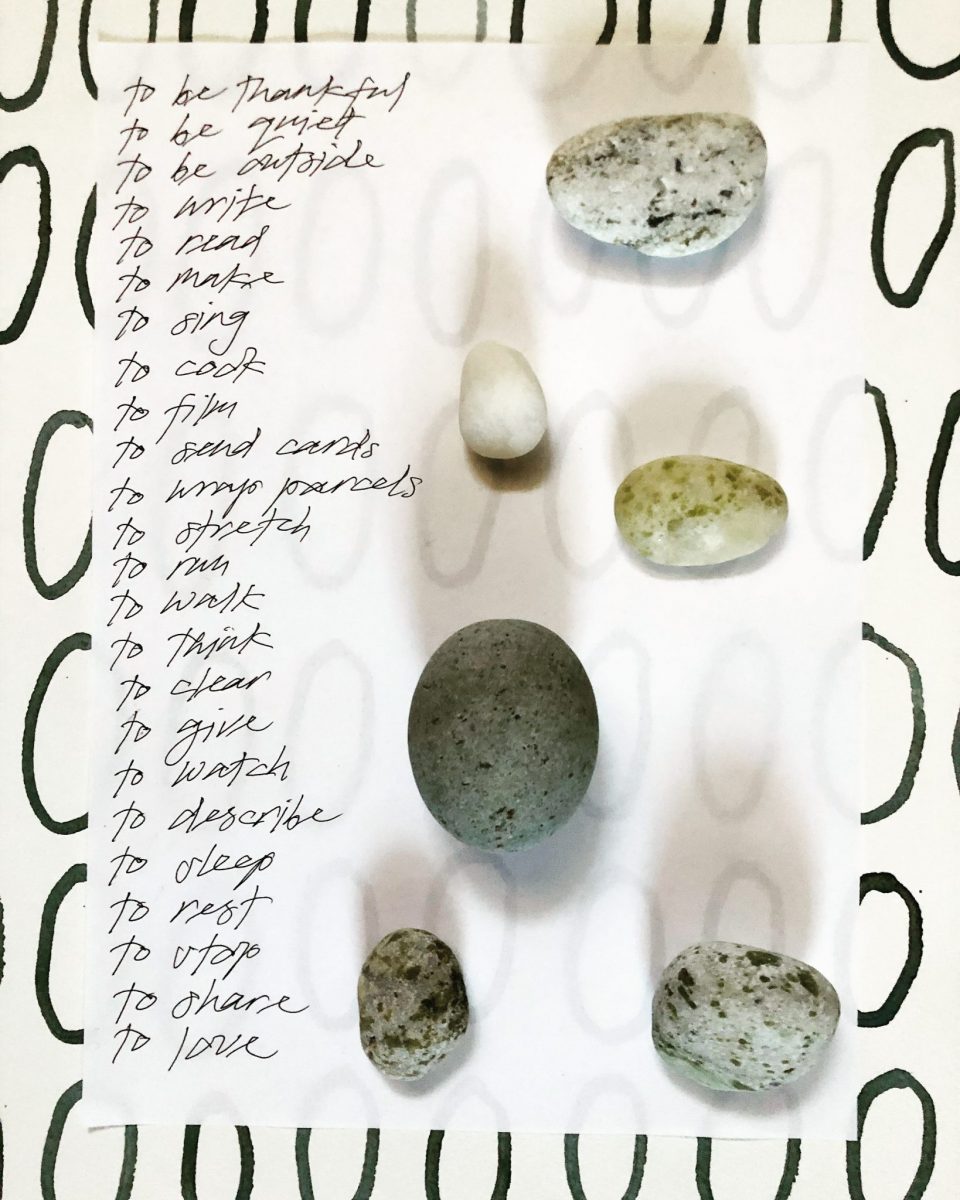 to be thankful
to be quiet
to be outside
to write
to read
to make
to sing
to cook
to film
to send cards
to wrap parcels
to stretch
to run
to walk
to think
to clear
to give
to watch
to describe
to sleep
to rest
to stop
to share
to love